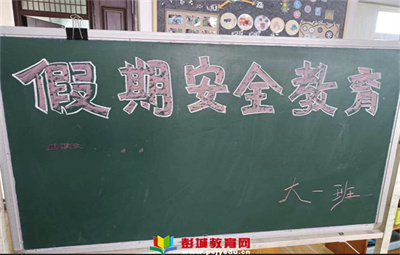 假期安全教育
大一班
彭城教育网